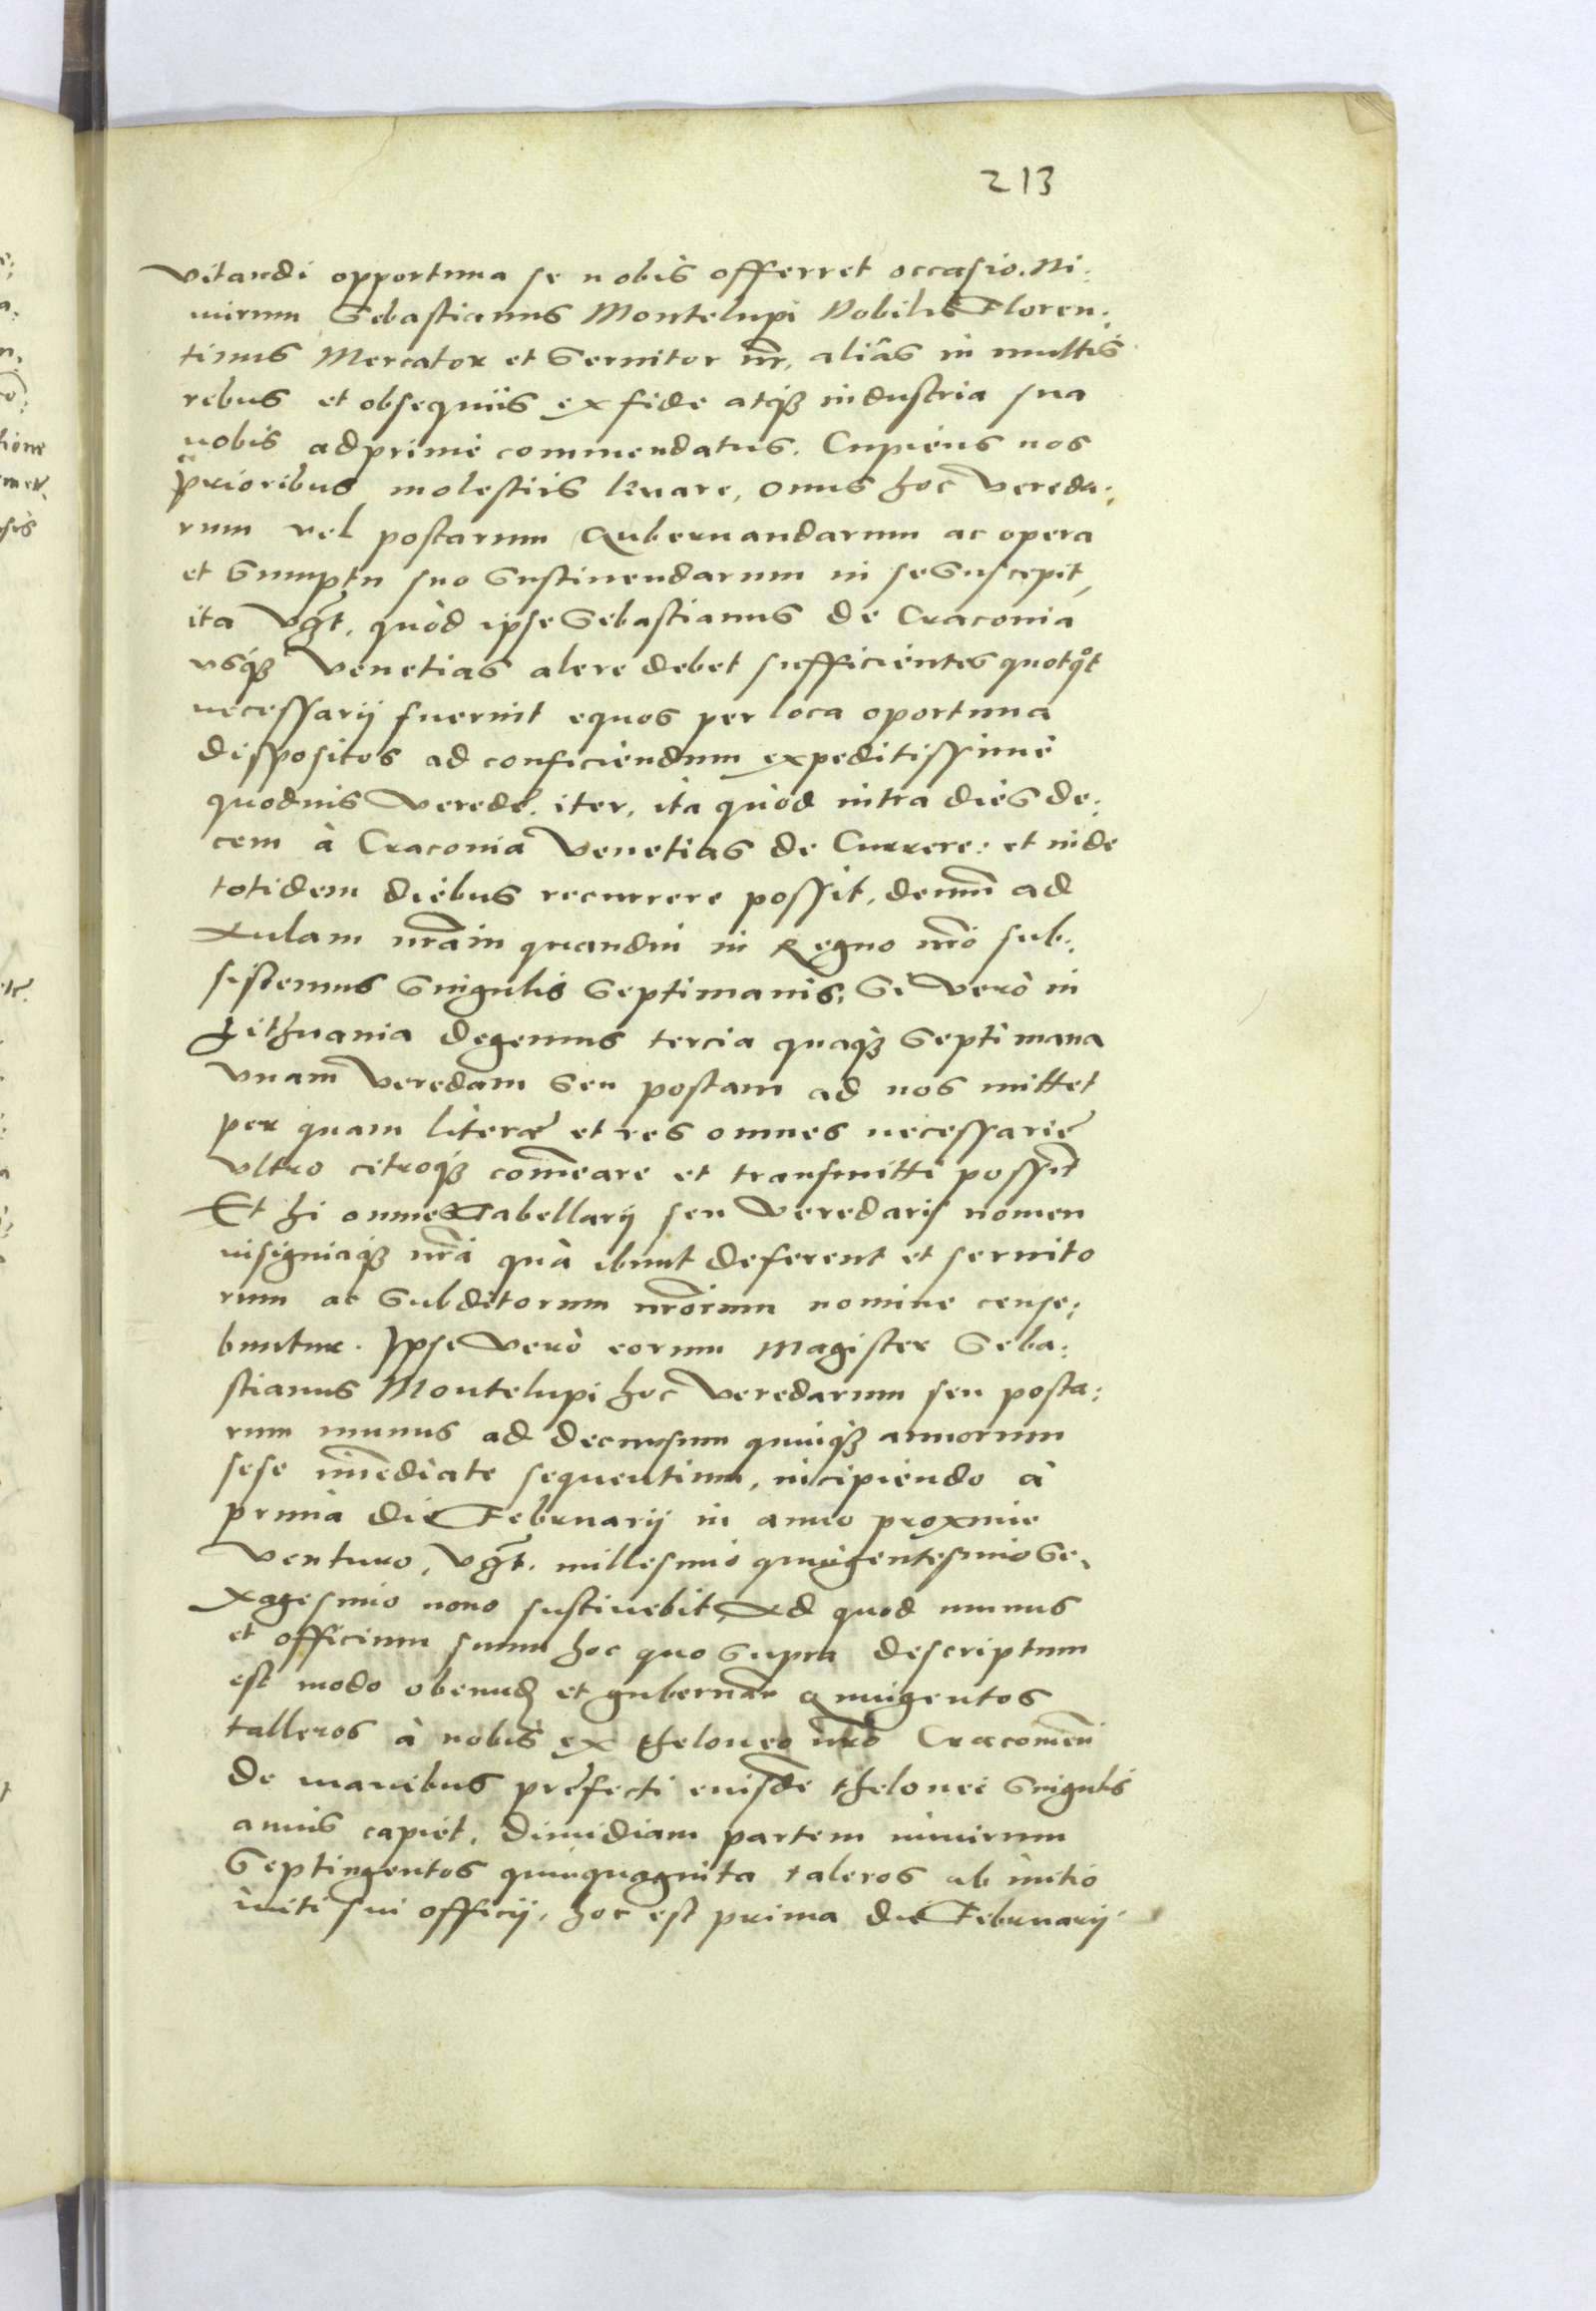 213
vitandi opportuna se nobis offerret occasio. Ni:
mirum Sebastianus Montelupi Nobilis Floren:
tinus Mercator et Servitor nr̄, aliàs in multis
rebus et obsequiis ex fide atq́ꝫ industria sua
nobis adprimè commendatus. Cupiens nos
prioribus molestiis levare, onus hoc vereda:
rum vel postarum Gubernandarum ac opera
et Sumptu suo Sustinendarum in se Suscepit,
ita vꝫt, quòd ipse Sebastianus de Cracovia
usq́ꝫ Venetias alere debet sufficientes quotqͦt
necessarij fuerint equos per loca oportuna
dispositos ad conficiendum expeditissimè
quodvis veredę. iter, ita quòd intra dies de:
cem à Cracovia Venetias de Currere: et inde
totidem diebus recurrere possit, demū ad
Aulam nr̄am quamdiu in Regno nr̄o sub:
sistemus Singulis Septimanis, Si verò in
Lithuania degemus tercia quaq́ꝫ Septimana
vnam veredam Seu postam ad nos mittet
per quam literæ et res omnes necessarię
vltro citroq́ꝫ com̄eare et transmitti possint
Et hi omnes Tabellarij seu veredarij nomen
insigniaq́ꝫ nr̄a quà ibunt deferent et servito
rum ac Subditorum nr̄orum nomine cense:
buntur. Ipse verò eorum Magister Seba:
stianus Montelupi hoc veredarum seu posta:
rum munus ad decursum quinq́ꝫ annorum
sese im̄ediate sequentium, incipiendo à
prima die Februarij in anno proximè
venturo, vꝫt. millesimo quingentesimo Se:
xagesimo nono sustinebit, Ad quod munus
et officium suum hoc quo Supra descriptum
est modo obeund et gubernan quingentos
talleros à nobis ex theloneo nr̄o Cracovien̄
de manibus prefecti eiusdē thelonei Singulis
annis capiet, dimidiam partem nimirum
Septingentos quinquaginta taleros ab initio
initi sui officij, hoc est prima die Februarij